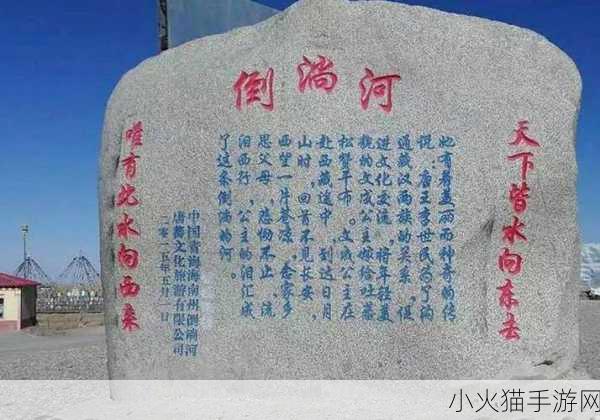 倒淌河
天下皆水向东去
她有着美丽而神奇的传
说：唐王李世民为了沟
通藏汉两族的关系，促
进文化交流，将年轻美
貌的文成公主嫁给吐蕃
松赞干布。文成公主在
赴西藏途中，到达日月
山时，回首不见长安，
西望一片苍凉，念家乡
思父母，悲恸不止，流
泪西行，公主的泪汇成
了这条倒淌的河。
中国青海海南州倒淌河
唐蕃文化旅游有限公司
二零一五年五月一日
唯有此水向西来
小火猫手游网